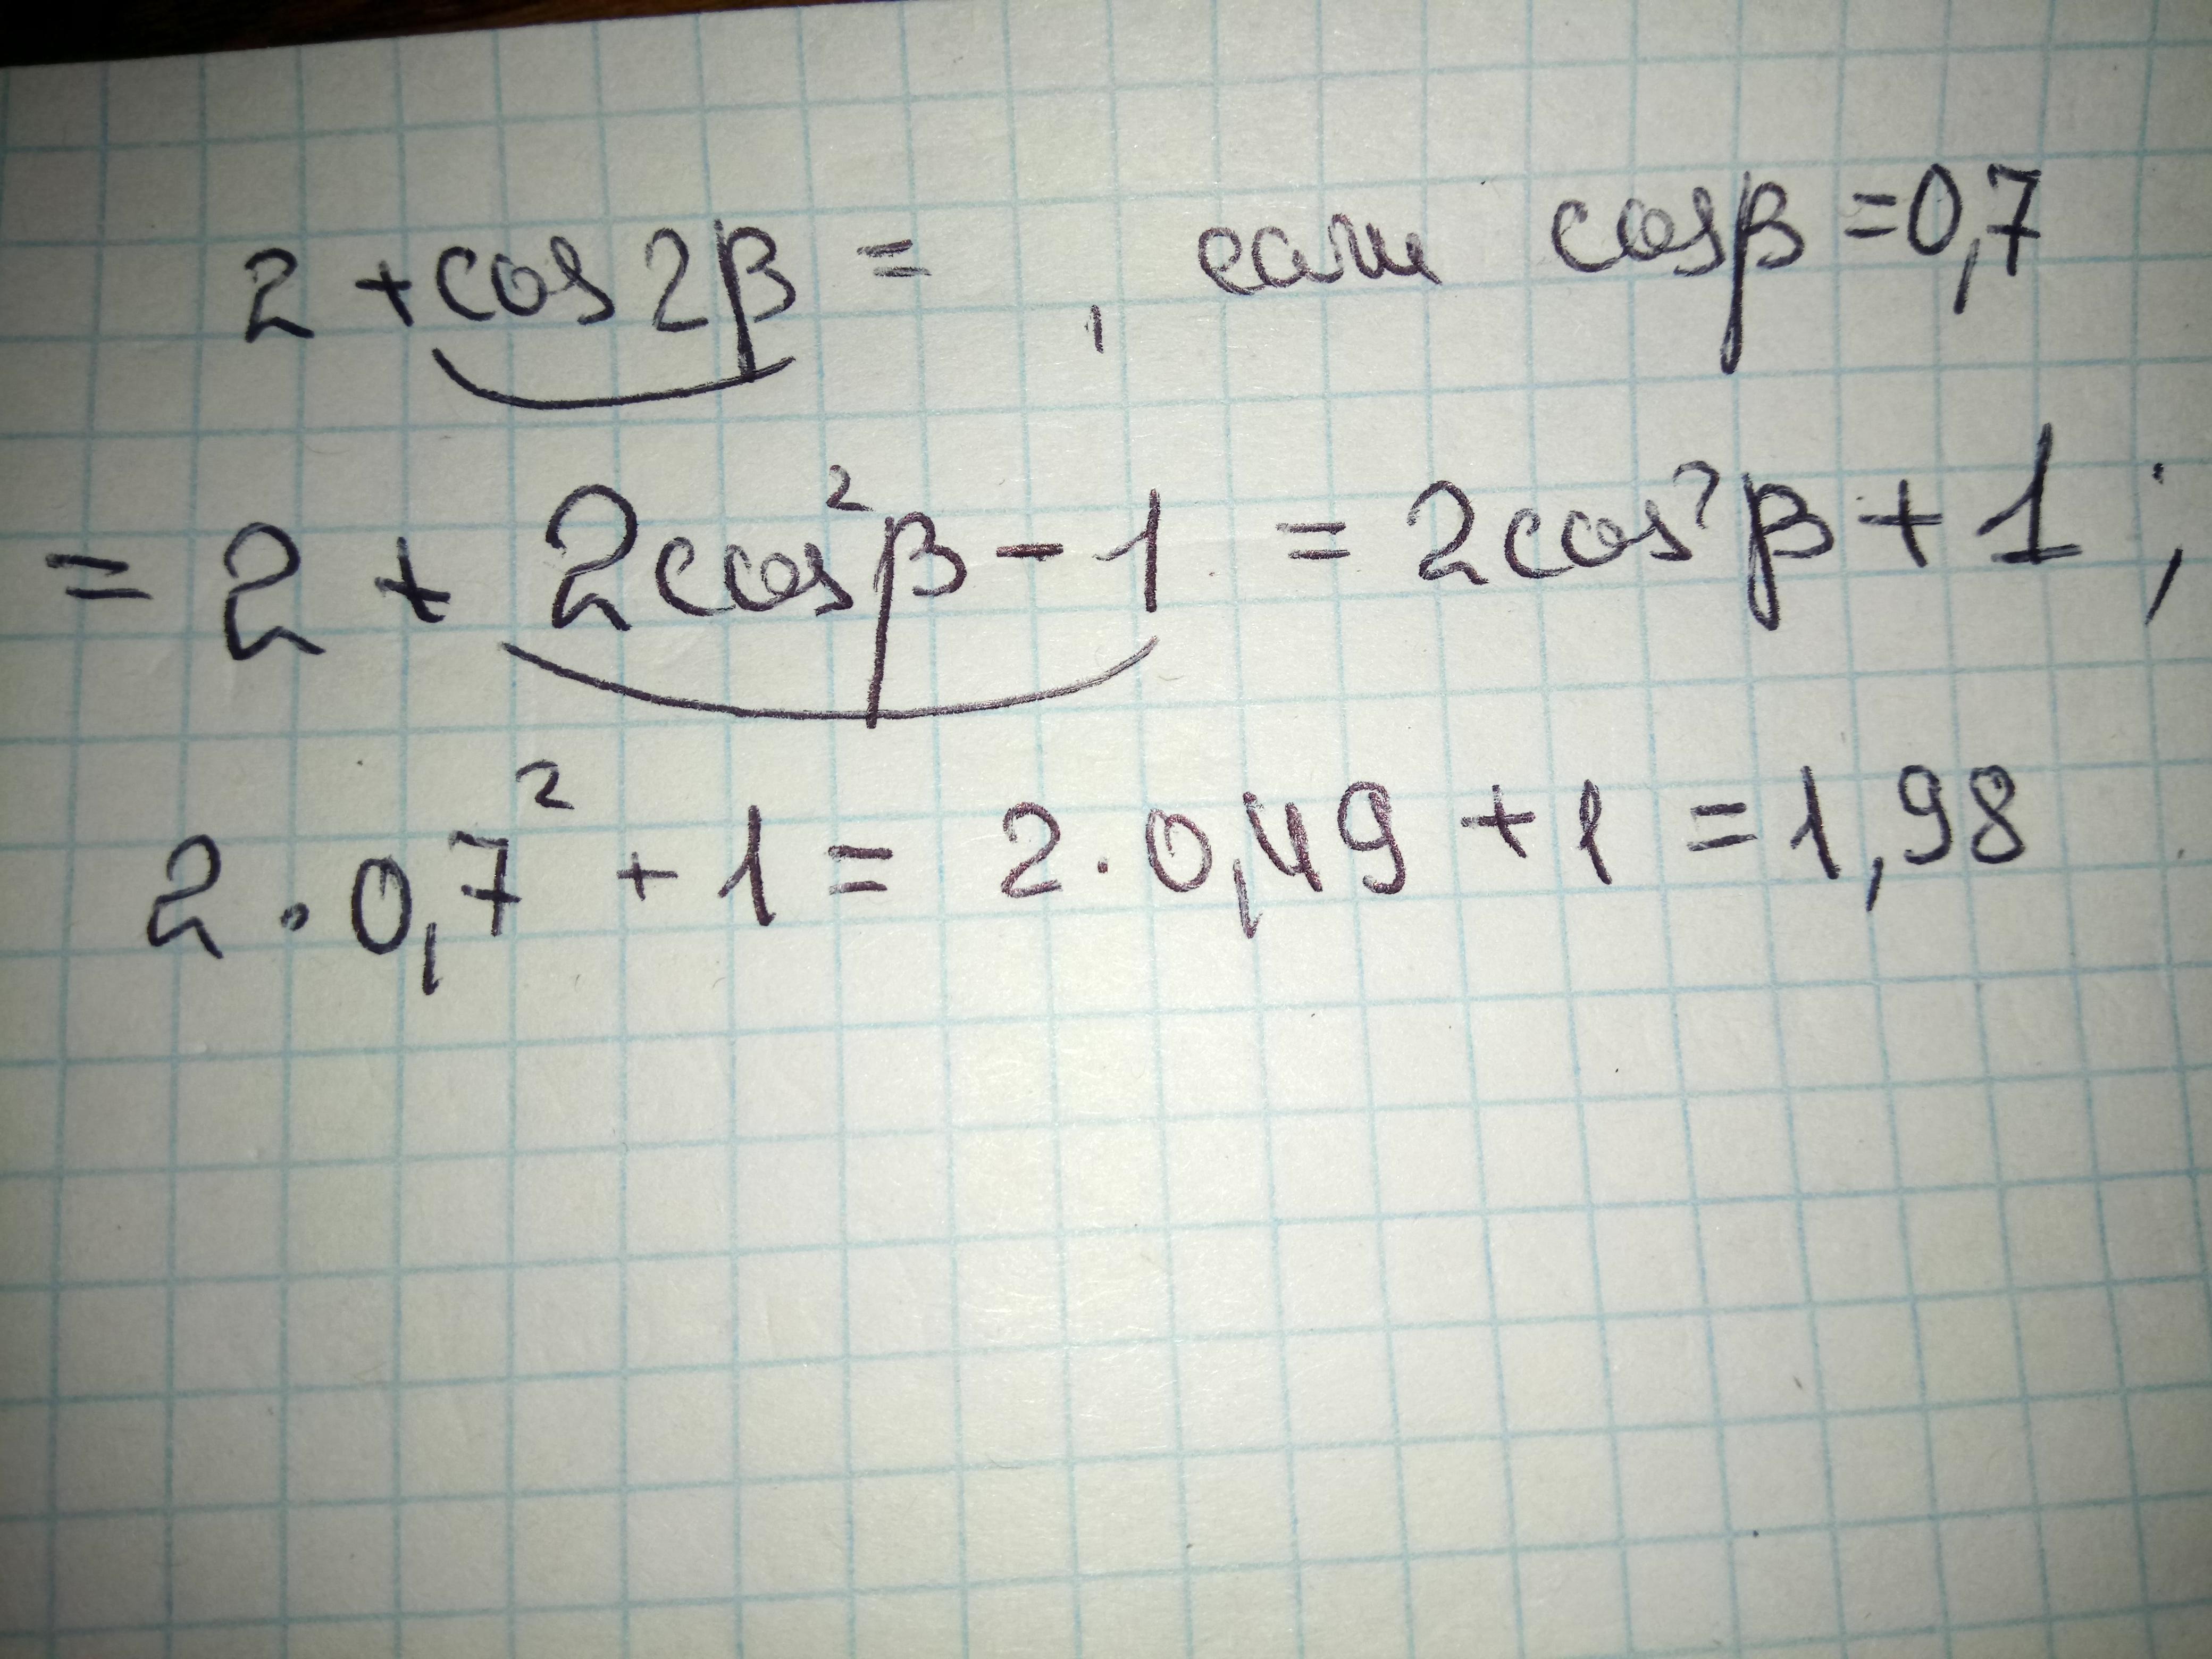 2 + cos 2β = , если cosβ = 0,7
= 2 + 2cos²β - 1 = 2cos²β + 1 ;
2 · 0,7² + 1 = 2 · 0,49 + 1 = 1,98